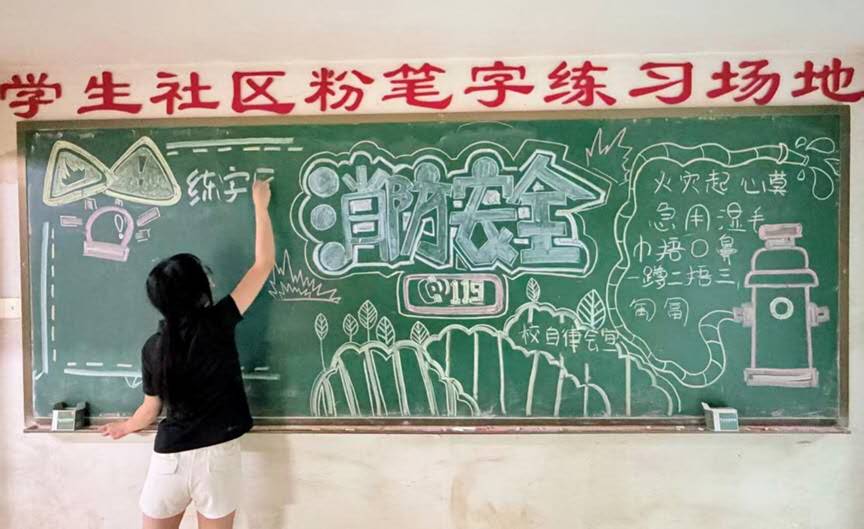 学生社区粉笔字练习场地
练字
消防安全
119
校自律会宣
火灾起 心莫
急 用 湿手
巾捂口鼻
一蹲二捂三
匍匐